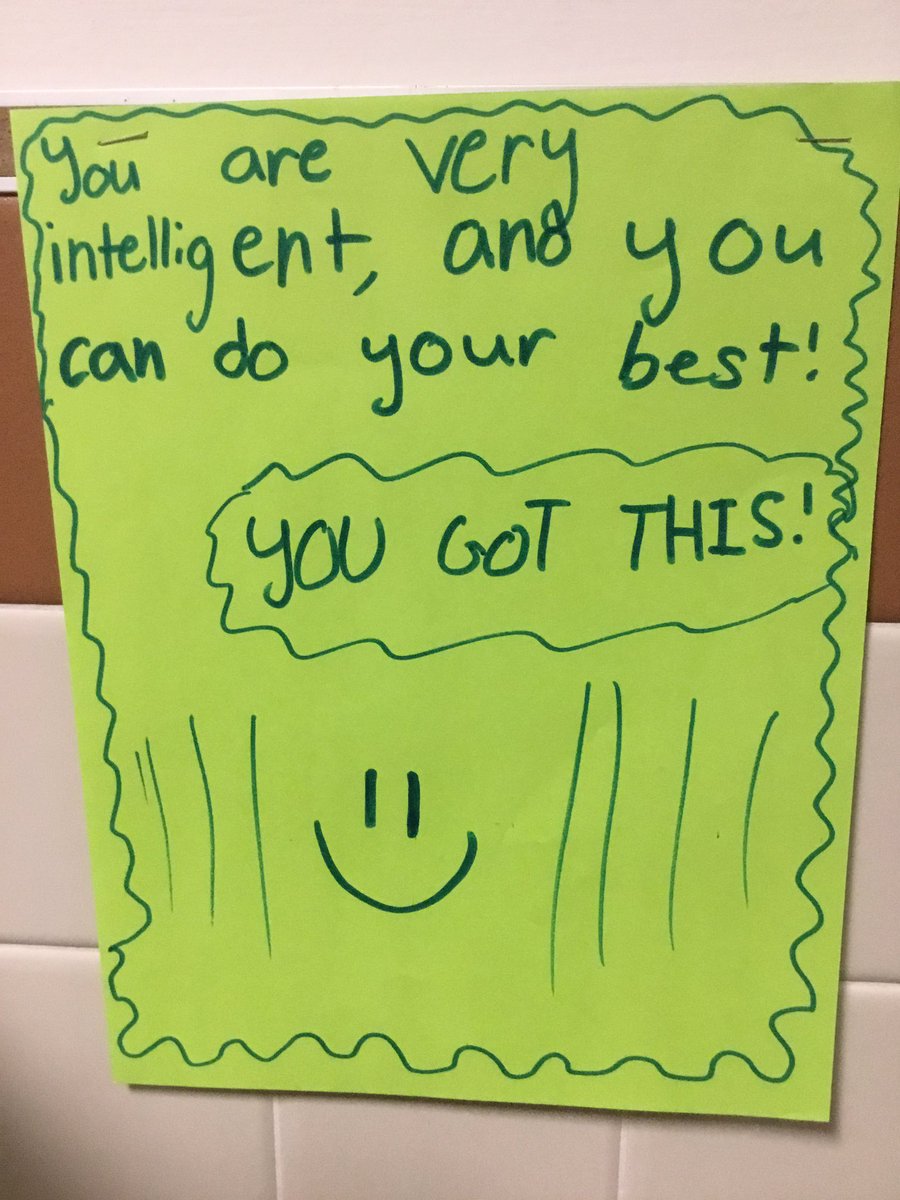 You are very
intelligent, and you
can do your best!
YOU GOT THIS!